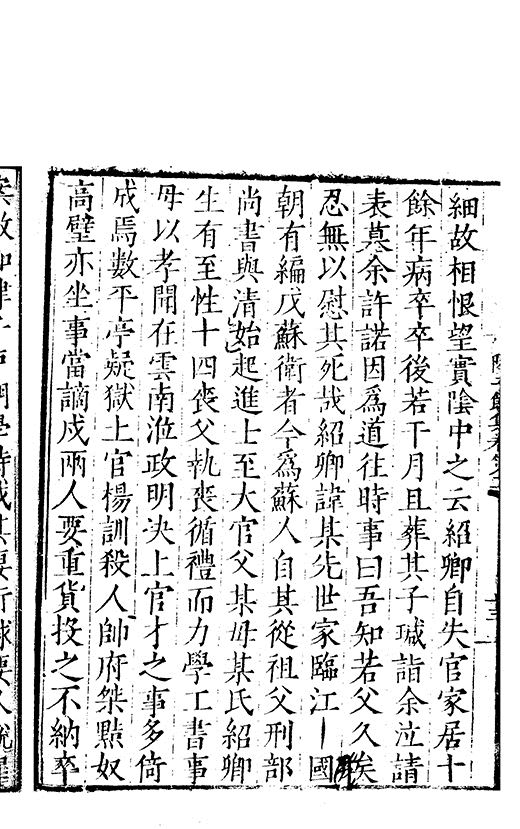 細故相恨望實陰中之云紹卿自失官家居十
餘年病卒卒後若干月且葬其子瑊詣余泣請
表墓余許諾因爲道往時事曰吾知若父久矣
忍無以慰其死哉紹卿諱某先世家臨江國
朝有編戍蘇衛者今爲蘇人自其從祖父刑部
尚書與清始起進士至大官父某母某氏紹卿
生有至性十四喪父執喪循禮而力學工書事
母以孝聞在雲南涖政明決上官才之事多倚
成焉數平亭疑獄上官楊訓殺人帥府桀黠奴
高璧亦坐事當謫戍兩人要重貨投之不納卒